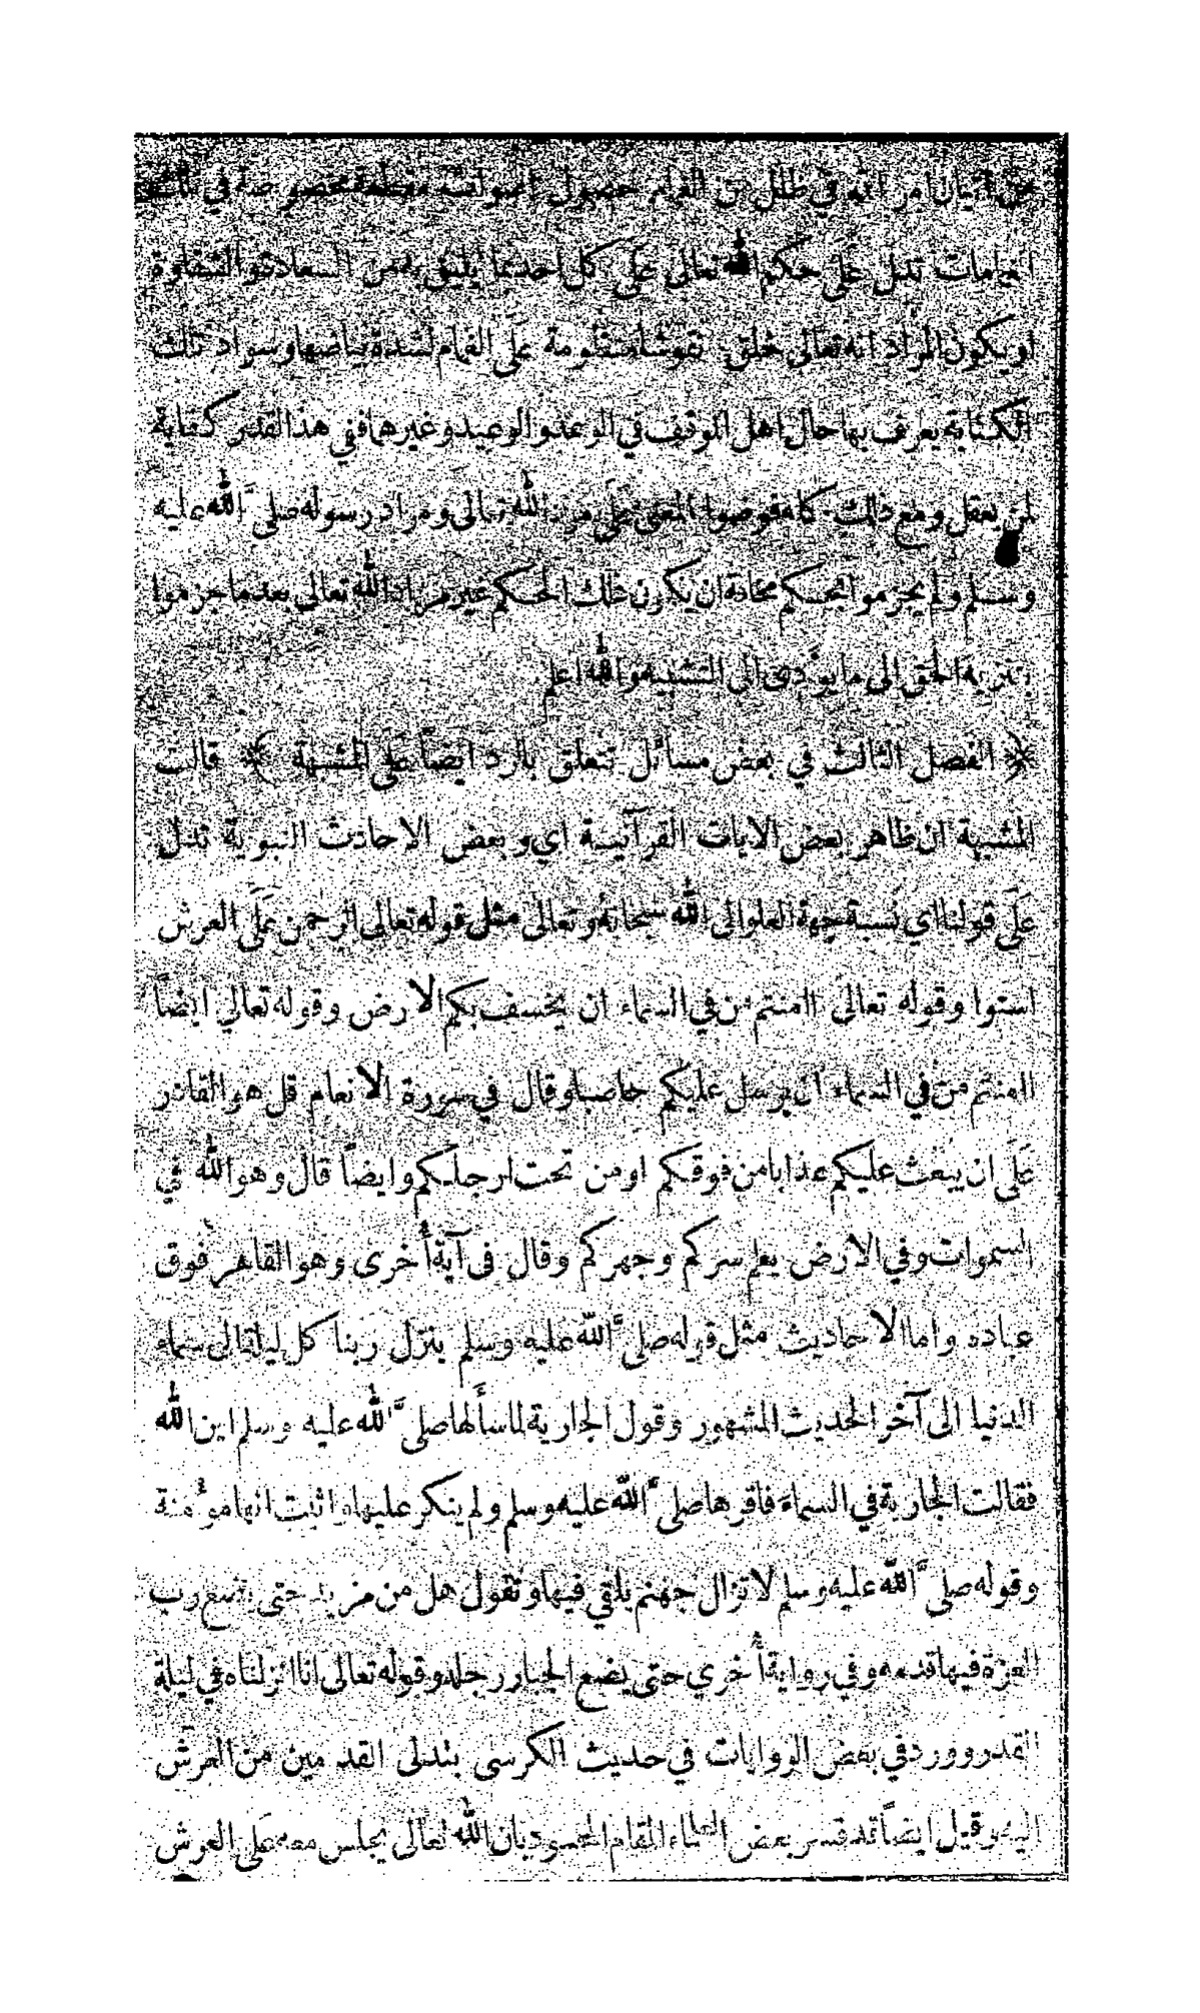 اتيان امر الله في ظلل من الغمام حصول اصوات مقطعة مخصوصة في تلك
الغمامات تدل على حكم الله تعالى على كل احد بما يليق به من السعادة والشقاوة
او يكون المراد انه تعالى خلق نقوشا منظومة على الغمام لشدة بياضها وسواد تلك
الكتابة يعرف بها حال اهل الموقف في الوعد والوعيد وغيرهما ففي هذا القدر كفاية
لمن يعقل ومع ذلك كله فوضوا المعنى الله تعالى ومراد رسوله صلى الله عليه
وسلم ولم يجزموا بحكم مخافة ان يكون ذلك الحكم غير مراد الله تعالى بعد ما جزموا
بتنزيه الحق الى ما يؤدى الى التشبيه والله اعلم
﴿ الفصل الثالث في بعض مسائل تتعلق بالرد ايضاً على المشبهة ﴾ قالت
المشبهة ان ظاهر بعض الايات القرآنية اي وبعض الاحادث النبوية تدل
عَلَى قولنا اي نسبة جهة العلو الى الله سبحانه وتعالى مثل قوله تعالى الرحمن عَلَى العرش
استوا وقوله تعالى اامنتم من في السماء ان يخسف بكم الارض وقوله تعالي ايضاً
اامنتم من في السماء ان يرسل عليكم حاصبا وقال في سورة الانعام قل هو القادر
عَلَى ان يبعث عليكم عذابا من فوقكم او من تحت ارجلكم وايضاً قال وهو الله في
السموات وفي الارض يعلم سركم وجهركم وقال فى آية أخرى وهو القاهر فوق
عباده واما الاحاديث مثل قوله صلى الله عليه وسلم ينزل ربنا كل ليلة الى سماء
الدنيا الى آخر الحديث المشهور وقول الجارية لما سألها صلى الله عليه وسلم اين الله
فقالت الجارية في السماء فاقرها صلى الله عليه وسلم ولم ينكر عليها واثبت انها مؤمنة
وقوله صلى الله عليه وسلم لا تزال جهنم يلقي فيها وتقول هل من مزيد حتى يضع رب
العزة فيها قدمه وفي رواية أخري حتى يضع الجبار رجله وقوله تعالى انا انزلناه في ليلة
القدر وورد في بعض الروايات في حديث الكرسى بتدلى القدمين من العرش
اليه وقيل ايضاً قد فسر بعض العلماء المقام المحمود بان الله تعالى يجلس معه عَلَى العرش